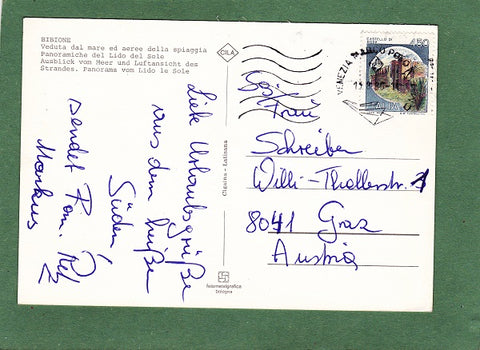 BIBIONE
Veduta dal mare ed aeree della spiaggia
Panoramiche del Lido del Sole
Ausblick vom Meer und Luftansicht des
Strandes. Panorama vom Lido le Sole
CILA
VENEZIA MARCO POLO
CASTELLO DI
450
ITALIA
Liebe Urlaubsgrüße
aus dem heißen
Süden!
sendet
Markus
Schreiber
8041 Graz
Austria
fotometalgrafica
bologna